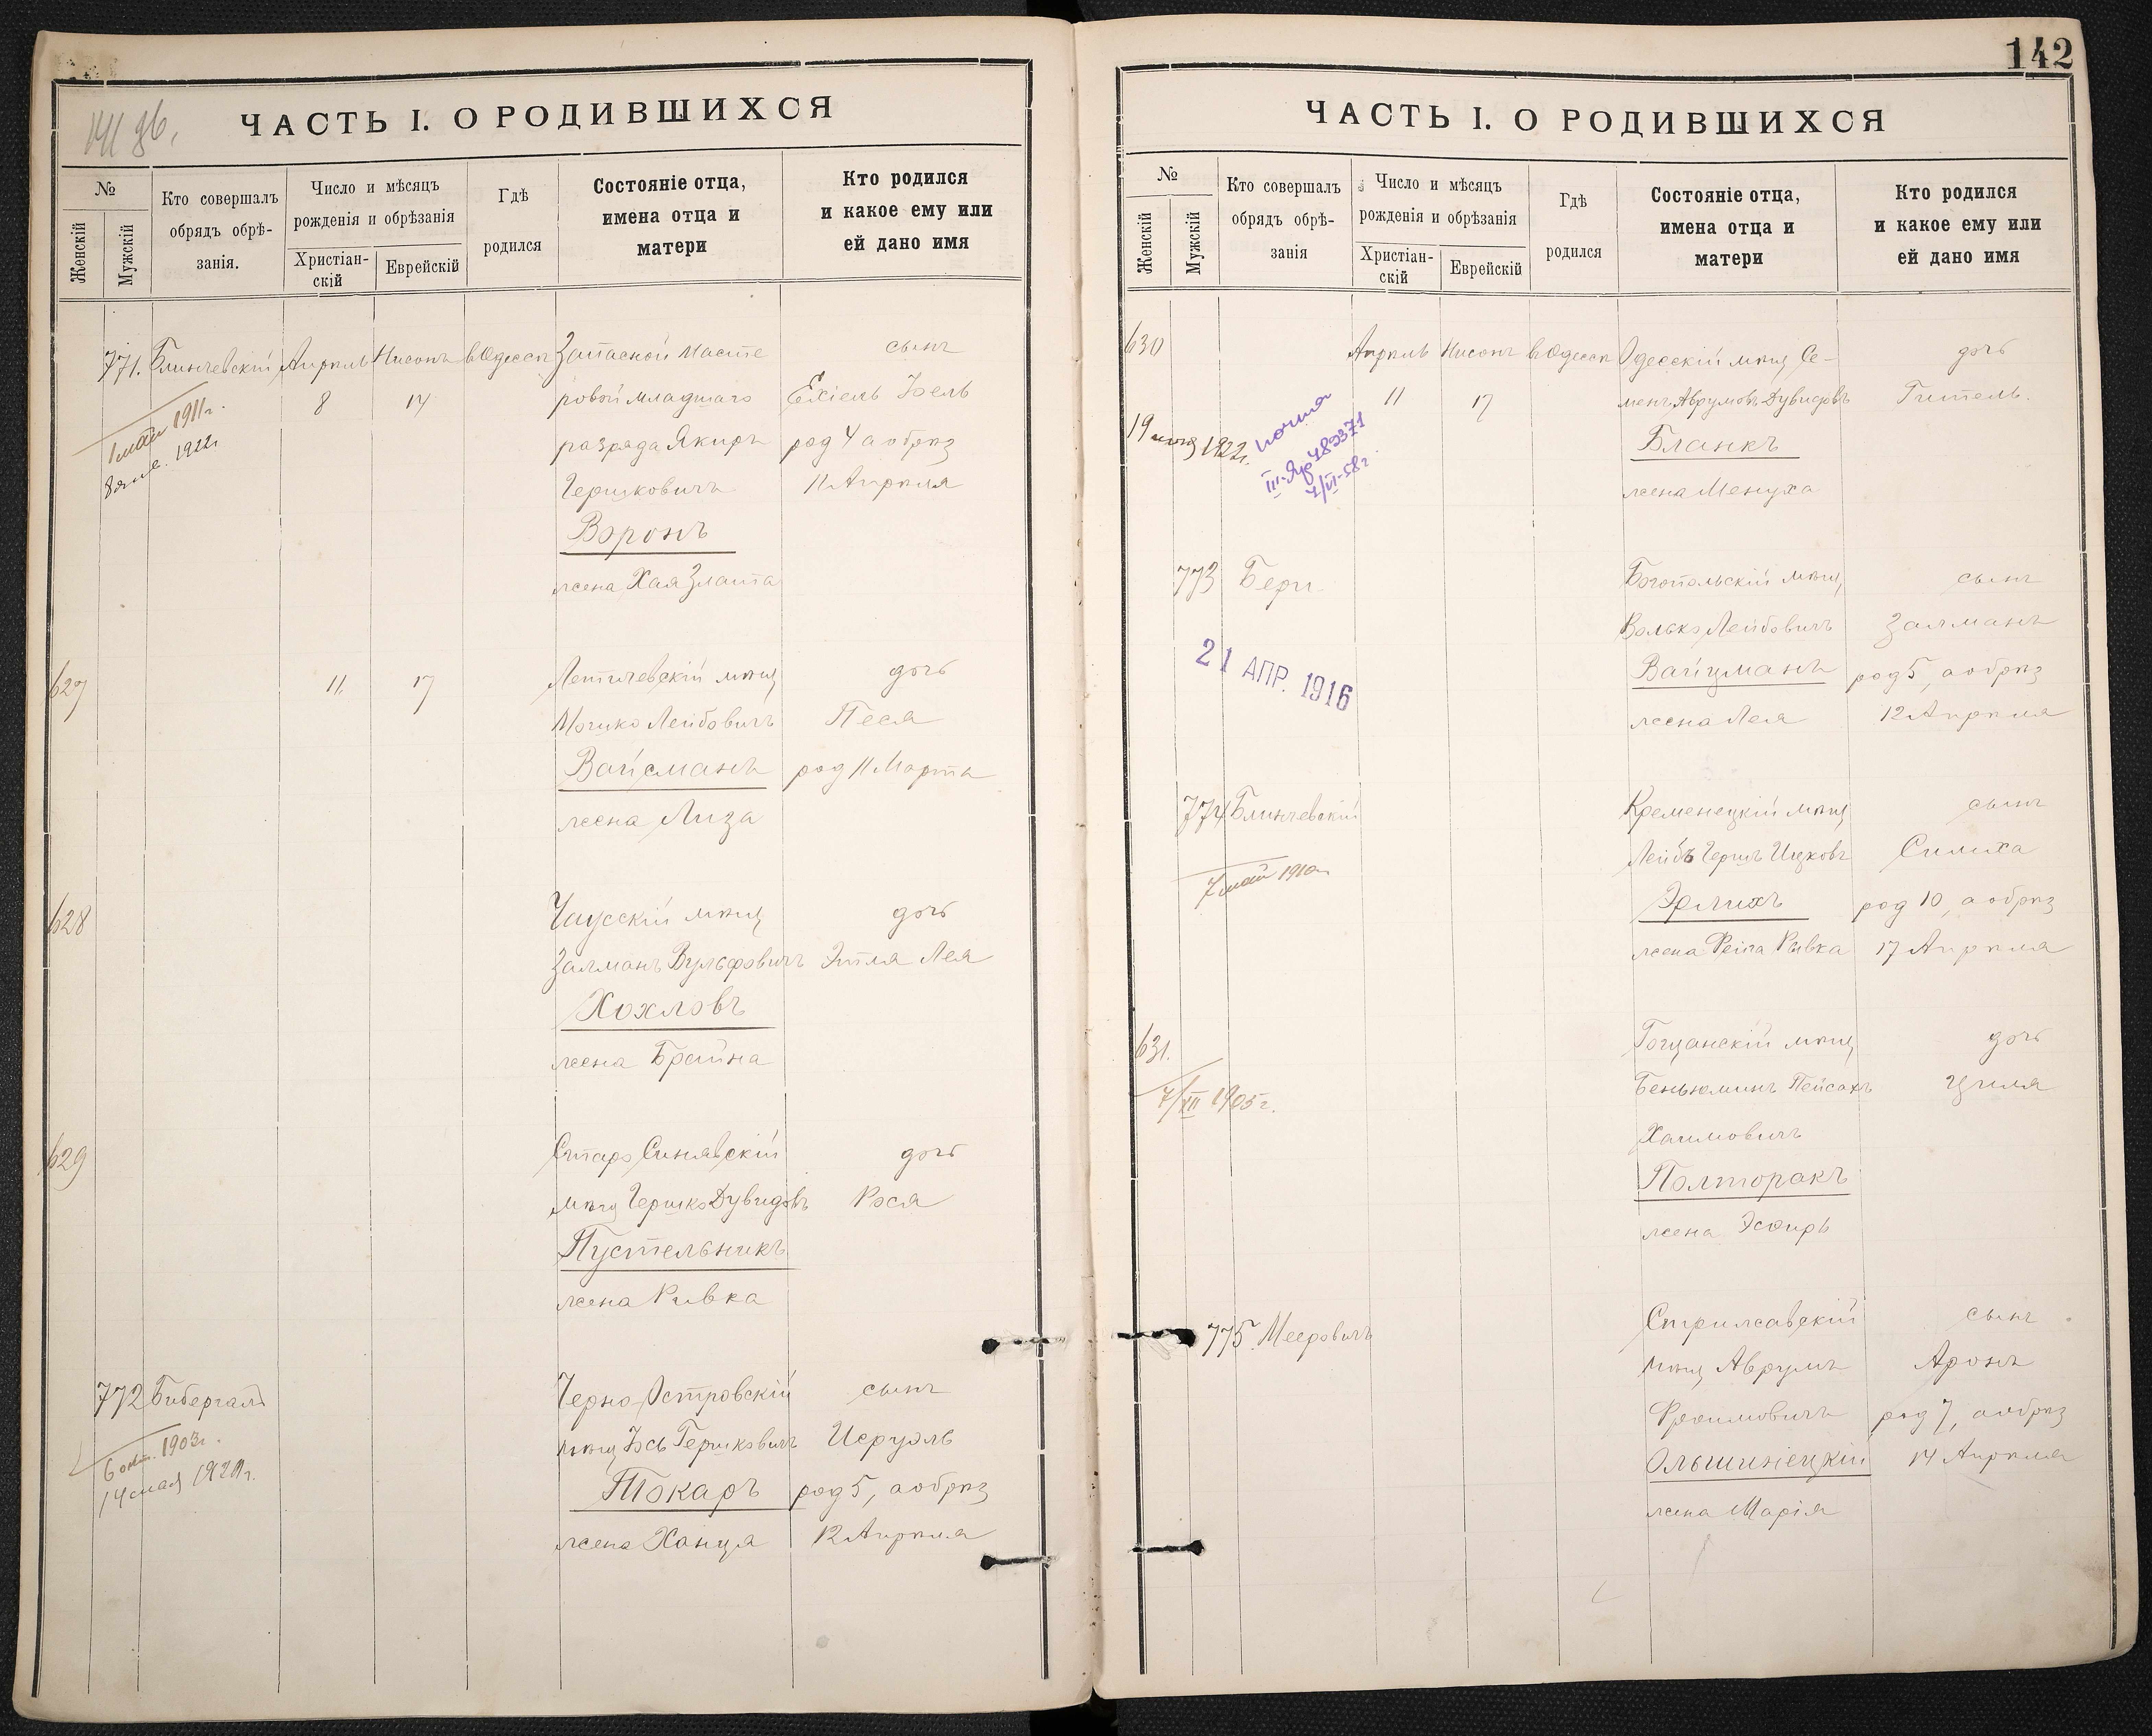 ЧАСТЬ I. О РОДИВШИХСЯ
№
Женскій
Мужскій
Кто совершалъ
обрядъ обрѣ-
занія.
Число и мѣсяцъ
рожденія и обрѣзанія
Христіан-
скій
Еврейскій
Гдѣ
родился
Состояніе отца,
имена отца и
матери
Кто родился
и какое ему или
ей дано имя
771. Блинчевскій Апрѣль Нисонъ в Одессѣ Запасной Масте сынъ
8 14 ровой младшаго Ехіель Іоель
1 май 1911 г. разряда Якиръ род 4 а обрѣз
1922 г. Гершковичъ 11 Апрѣля
Воронъ
жена Хая Злата
627 11 17 Летичевскій мѣщ дочь
Мошко Лейбовичъ Песя
Вайсманъ род 11 Марта
жена Лиза
628 Чаусскій мѣщ дочь
Залманъ Вульфовичъ Этля Лея
Хохловъ
жена Брайна
629 Старо Синявскій дочь
мѣщ Гершко Дувидовъ Рося
Пустельникъ
жена Ривка
772 Бибергалъ Черно-Островскій сынъ
6 окт. 1903 г. мѣщ Іось Гершковичъ Исруэль
14 мая 1921 г. Токаръ род 5, а обрѣз
жена Ханця 12 Апрѣля
142
ЧАСТЬ I. О РОДИВШИХСЯ
№
Женскій
Мужскій
Кто совершалъ
обрядъ обрѣ-
занія
Число и мѣсяцъ
рожденія и обрѣзанія
Христіан-
скій
Еврейскій
Гдѣ
родился
Состояніе отца,
имена отца и
матери
Кто родился
и какое ему или
ей дано имя
630 Апрѣль Нисонъ в Одессѣ Одесскій мѣщ Се- дочь
11 17 менъ Аврумовъ Дувидовъ Гитель.
19 1922 г. Бланкъ
копия
III-ЯР 489371
7/VI-58 г.
жена Менуха
773 Бери Богопольскій мѣщ сынъ
Волько Лейбовичъ Залманъ
21 АПР. 1916
Вайцманъ род 5, а обрѣз
жена Лея 12 Апрѣля
774 Блинчевскій Кременецкій мѣщ сынъ
Лейбъ Гершъ Ицковъ Симха
7 май 1910 г.
Эрлихъ род 10, а обрѣз
жена Фейга Ривка 17 Апрѣля
631. Гощанскій мѣщ дочь
7/XII 1905 г. Беньюминъ Пейсахъ Циля
Хаимовичъ
Полторакъ
жена Эсѳирь
775. Мееровичъ Стрижавскій сынъ
мѣщ Аврумъ Аронъ
Фроимовичъ род 7, а обрѣз
Ольшинецкій 14 Апрѣля
жена Марія